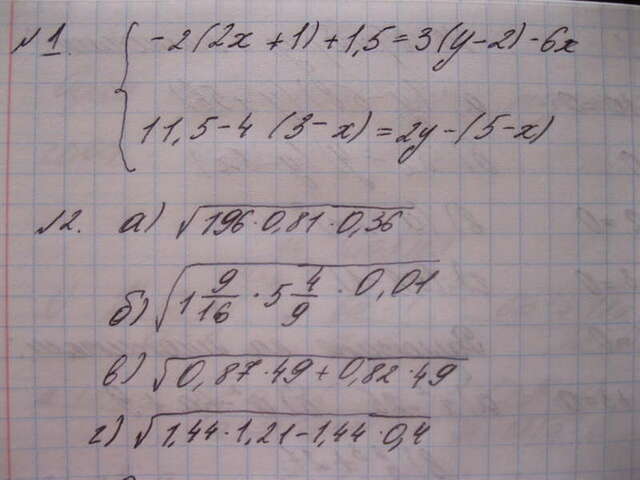 №1. { -2(2x+1)+1,5=3(y-2)-6x
11,5-4(3-x)=2y-(5-x)
№2. а) √196·0,81·0,36
б) √1 9/16 · 5 4/9 · 0,01
в) √0,87·49+0,82·49
г) √1,44·1,21-1,44·0,4